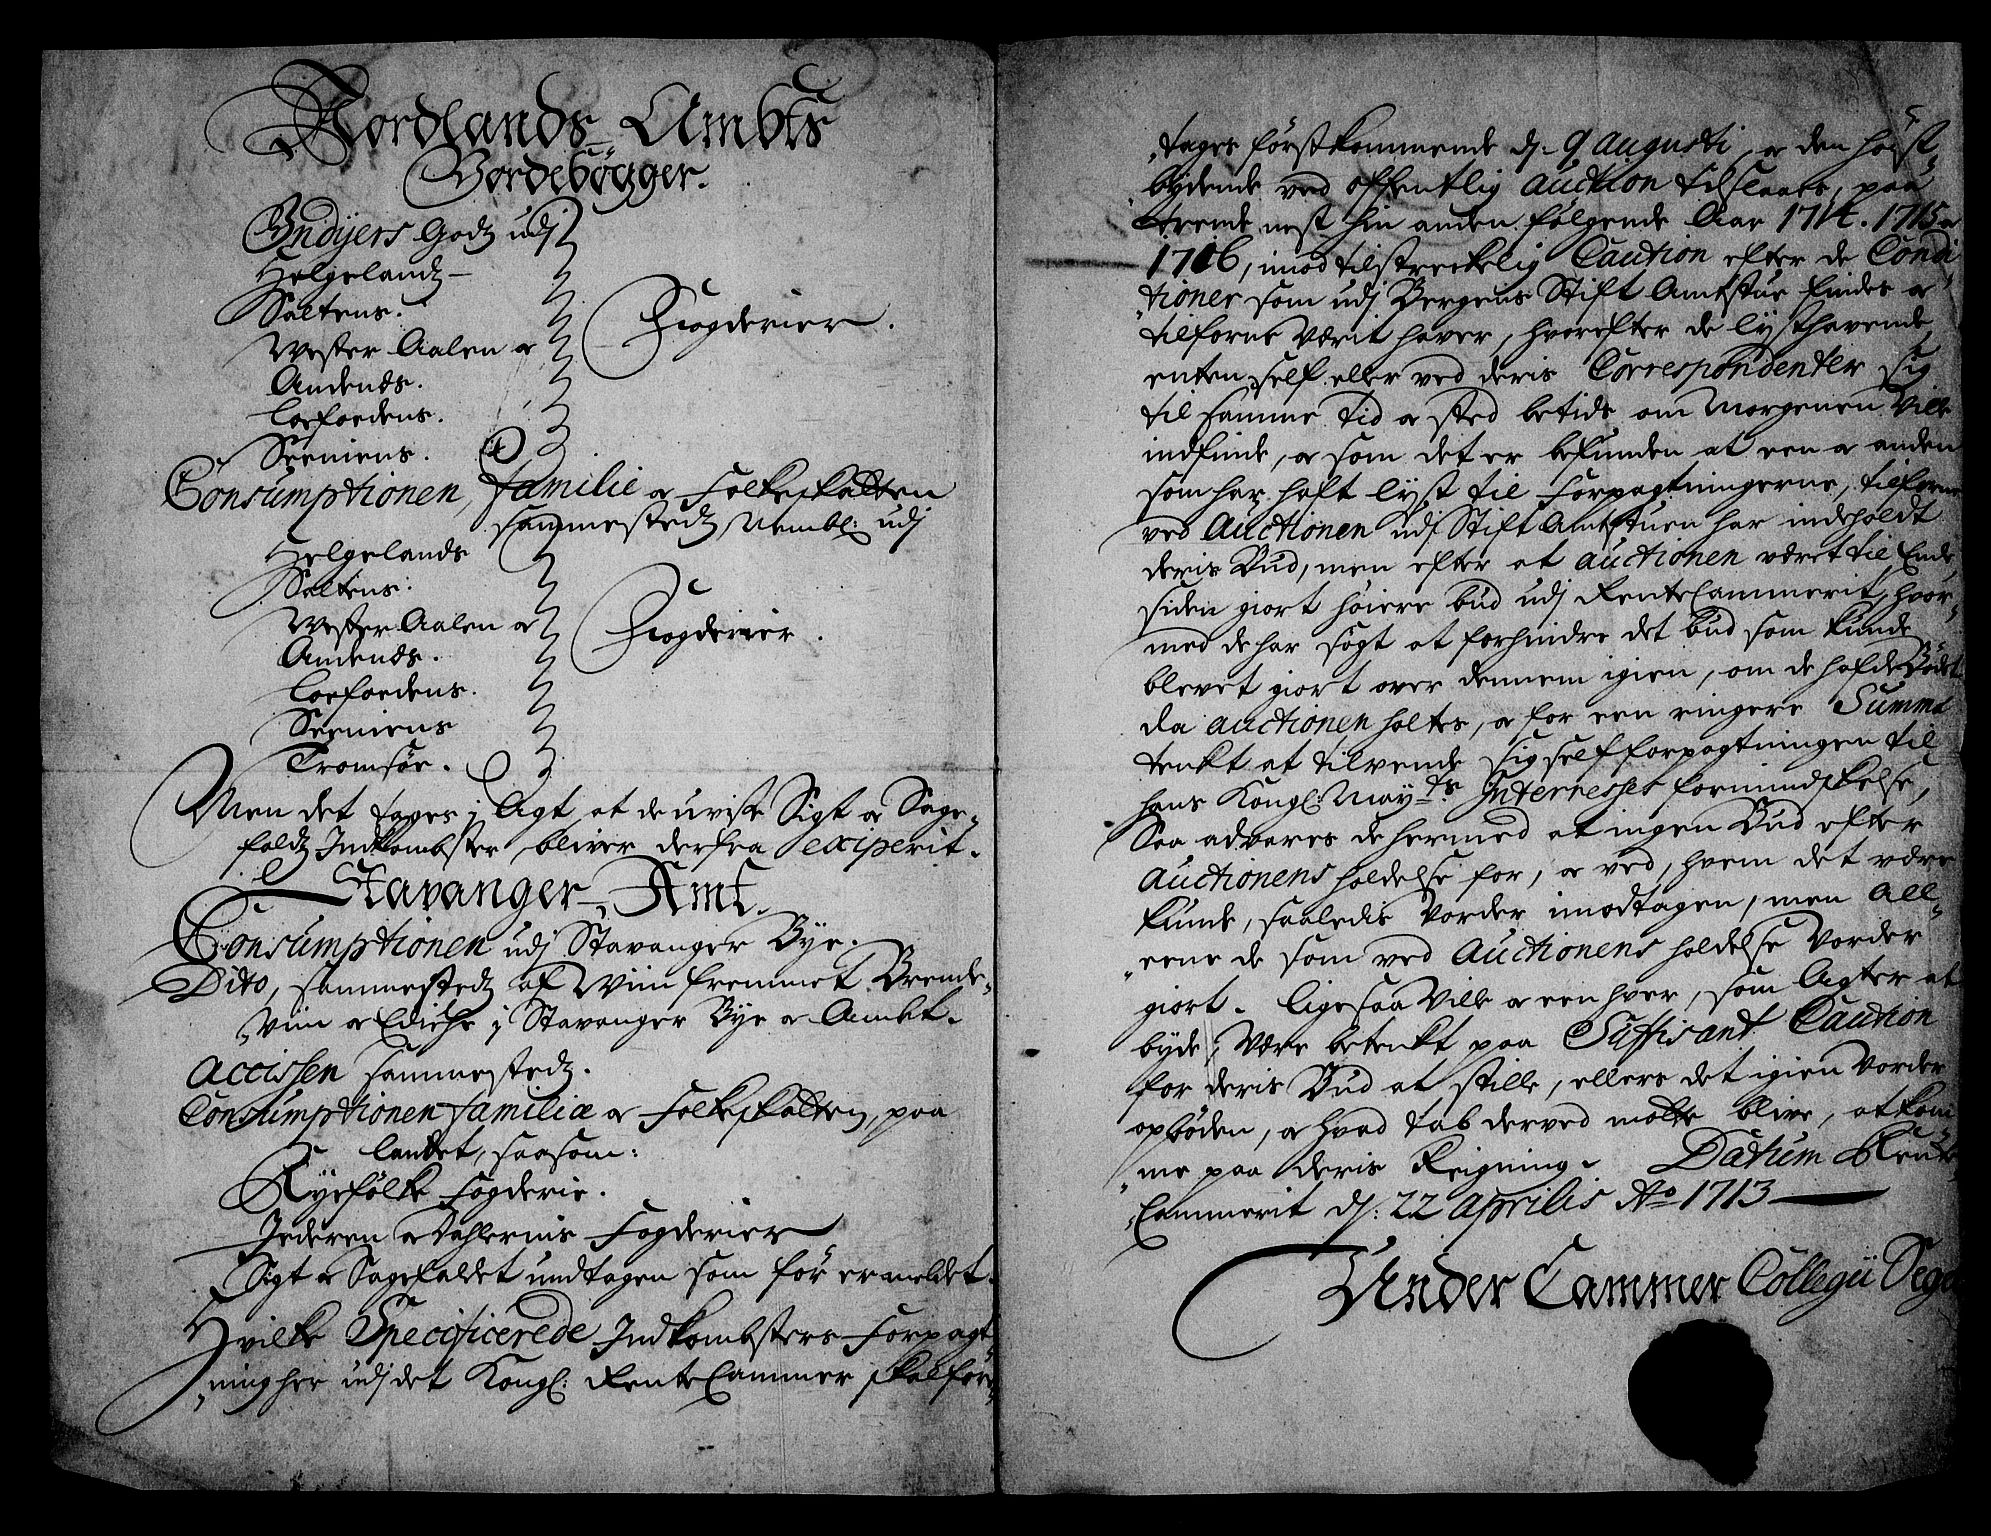 Nordlands Ambts
Jordebøgger.
Gudyers Godtz udj
Helgelandtz
Saltens.
Wester Aalen og
Andenæs.
Loefoedens.
Senniens.
Fogderier.
Consumptionen, familie og Folkeskatten
sammestedtz Nembl: udj
Helgelands
Saltens:
Wester Aalen og
Andenæs.
Loefoedens.
Senniens
Tromsøe.
Fogderier.
Men det tages j Agt at de uviste Sigt og Sage-
faldtz Indkombster, bliver derfra exciperit.
Stavanger Amt.
Consumptionen udj Stavanger Bye.
Dito, sammestedtz af Viin fremmet Brende-
viin og Ediche j Stavanger Bye og Ambt.
Accissen sammestedtz.
Consumptionen familie og Folkeskatten, paa
landet, saasom:
Ryefølke Fogderie.
Jederen og Dahlernis Fogderier
Sigt og Sagefaldet undtagen som før ermeldet.
Hvilke Specificerede Indkombsters Forpagt-
ningher udj det Kongl: RenteCammer skal fore-
tages førstkommende d: 9 Augusti, og den høist-
bydende ved offentlig Auction tilslaaes, paa
trende nest hin anden følgende Aar 1714. 1715 og
1716, imod tilstreckelig Caution efter de Condi-
tioner som udj Bergens Stift Amtstue findes og
tilforne værit haver, hvorefter de lysthavende
enten self eller ved deris Correspondenter sig
til samme tid og sted betids om Morgenen ville
indfinde, og som det er befunden at een og anden
som har haft lyst til Forpagtningerne, tilforne
ved Auctionen udj StiftAmtstuen har indeholdt
deris Bud, men efter at auctionen været til Ende,
siden giort høiere bud udj RenteCammerit, hvor-
med de har søgt at forhindre det bud som kunde
blevet giort over dennem igien, om de hafde Bødet
da auctionen holtes, og for een ringere Summa
tenkt at tilvende sig self forpagtningen til
hans Kongl: May.ts Interesses formindskelse,
Saa advares de hermed at ingen Bud efter
Auctionens holdelse for, og ved, hvem det være
kunde, saaledis vorder imodtagen, men all-
eene de som ved Auctionens holdelse vorder
giort. ligesaa ville og een hver, som Agter at
byde, være betenkt paa Suffisant Caution
for deris Bud at stille, ellers det igien vorder
opbøden, og hvad tab derved motte blive, at kom-
me paa deris Reigning. Datum Rente-
Cammerit d: 22 Aprilis Ao 1713
Under Cammer Collegii Segl